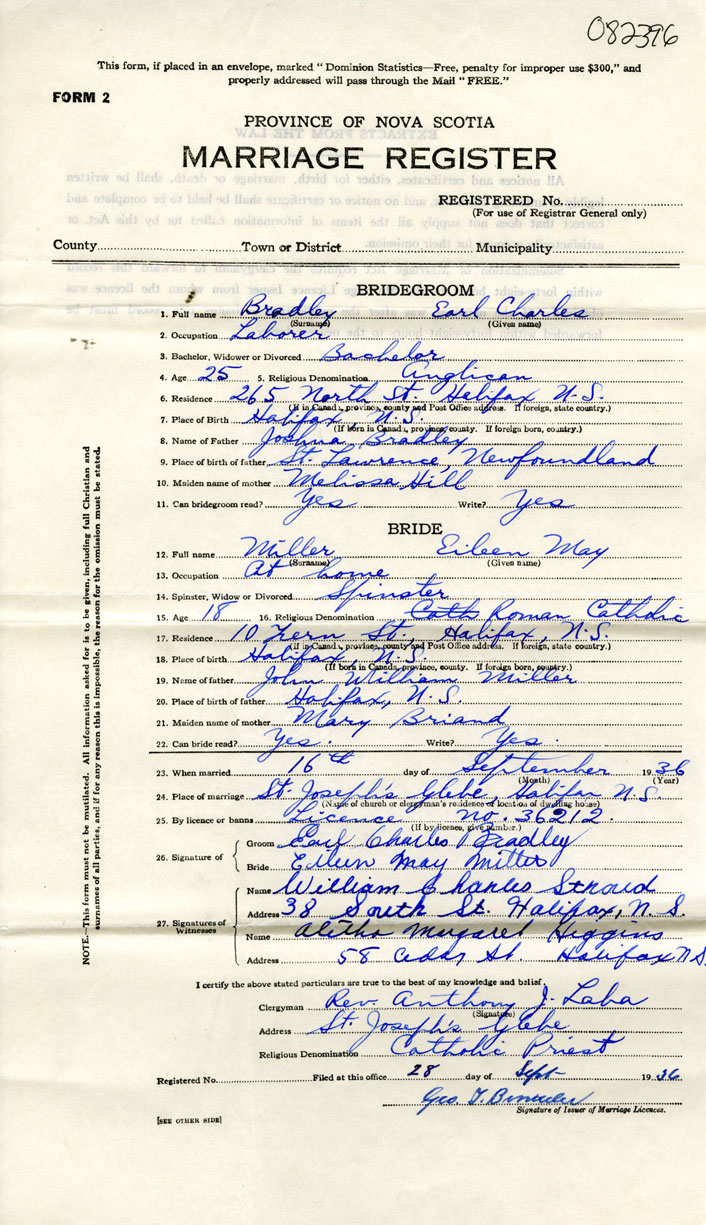 082396
This form, if placed in an envelope, marked "Dominion Statistics—Free, penalty for improper use $300," and
properly addressed will pass through the Mail "FREE."
FORM 2
PROVINCE OF NOVA SCOTIA
MARRIAGE REGISTER
REGISTERED No.
(For use of Registrar General only)
County Town or District Municipality
BRIDEGROOM
1. Full name Bradley Earl Charles
(Surname) (Given name)
2. Occupation Laborer
3. Bachelor, Widower or Divorced Bachelor
4. Age 25 5. Religious Denomination Anglican
6. Residence 265 North St. Halifax N.S.
(If in Canada, province, county and Post Office address. If foreign, state country.)
7. Place of Birth Halifax N.S.
(If born in Canada, province, county. If foreign born, country.)
8. Name of Father Joshua Bradley
9. Place of birth of father St. Lawrence, Newfoundland
10. Maiden name of mother Melissa Hill
11. Can bridegroom read? Yes Write? Yes
BRIDE
12. Full name Miller Eileen May
(Surname) (Given name)
13. Occupation At home
14. Spinster, Widow or Divorced Spinster
15. Age 18 16. Religious Denomination Cath Roman Catholic
17. Residence 10 St., Halifax, N.S.
(If in Canada, province, county and Post Office address. If foreign, state country.)
18. Place of birth Halifax, N.S.
(If born in Canada, province, county. If foreign born, country.)
19. Name of father John William Miller
20. Place of birth of father Halifax, N.S.
21. Maiden name of mother Mary Briand
22. Can bride read? Yes. Write? Yes.
23. When married 16th day of September 1936
(Month) (Year)
24. Place of marriage St. Joseph's Glebe, Halifax N.S.
(Name of church or clergyman's residence or location of dwelling house)
25. By licence or banns Licence no. 36212
(If by licence, give number.)
26. Signature of Groom Earl Charles Bradley
Bride Eileen May Miller
27. Signatures of Witnesses
Name William Charles Stroud
Address 38 South St. Halifax, N.S.
Name Aletha Margaret Higgins
Address 58 St. Halifax N.S.
NOTE.—This form must not be mutilated. All information asked for is to be given, including full Christian and
surnames of all parties, and if for any reason this is impossible, the reason for the omission must be stated.
I certify the above stated particulars are true to the best of my knowledge and belief.
Clergyman Rev. Anthony J. Laba
(Signature)
Address St. Joseph's Glebe
Religious Denomination Catholic Priest
Registered No. Filed at this office 28 day of Sept 1936
Geo. T.
Signature of Issuer of Marriage Licences.
[SEE OTHER SIDE]